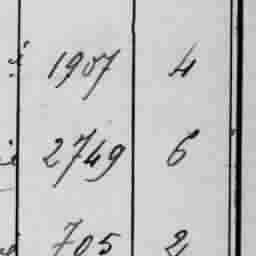 1907 4
2749 6
705 2